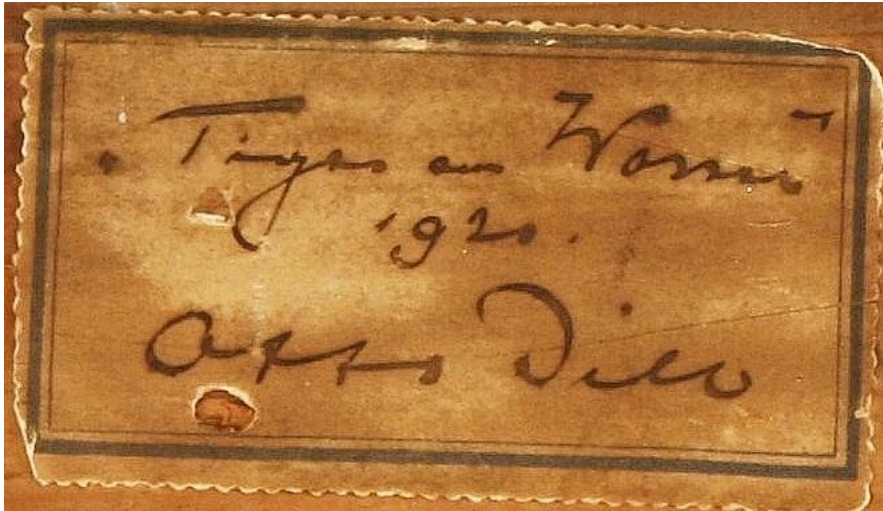 „Tiger am Wasser“
1920.
Otto Dill